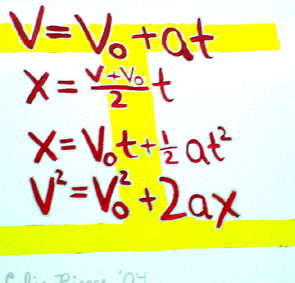 V=V₀+at
x=(v+v₀)/2 t
x=V₀t+½at²
V²=V₀²+2ax
'04